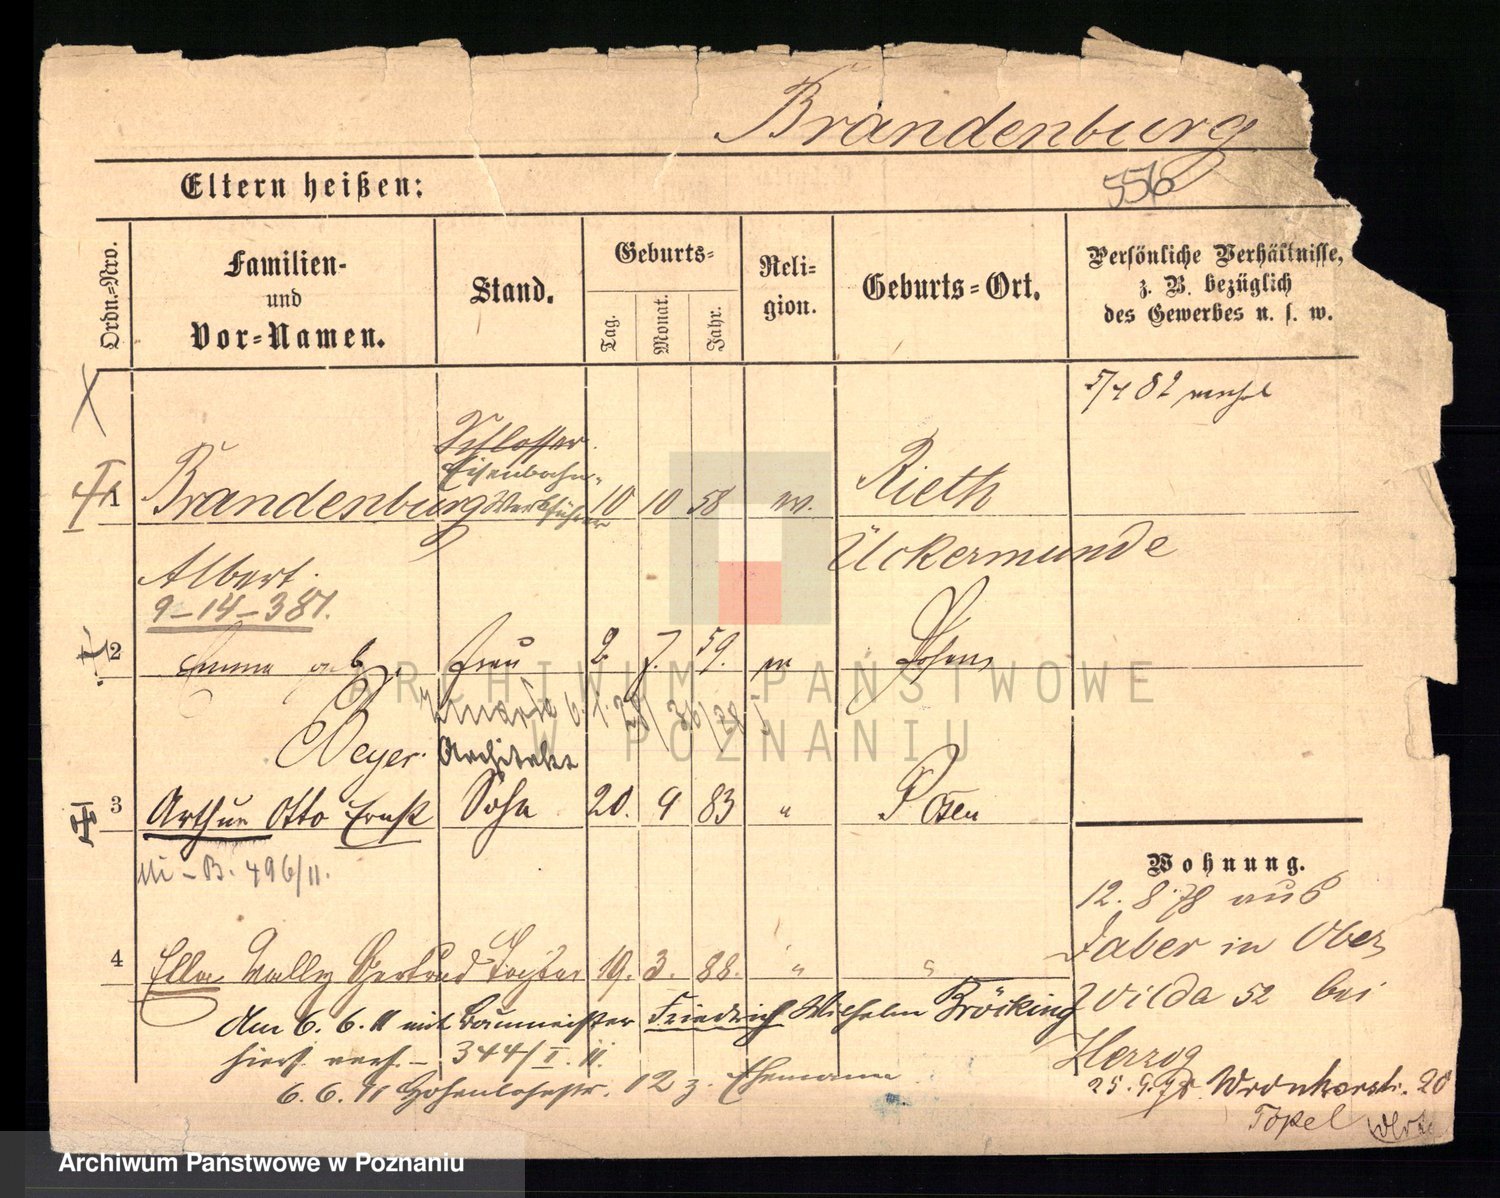 Brandenburg
556
Eltern heißen:
Ordn.=Nro.
Familien-
und
Vor=Namen.
Stand.
Geburts=
Tag.
Monat.
Jahr.
Reli=
gion.
Geburts=Ort.
Persönliche Verhältnisse,
z. B. bezüglich
des Gewerbes u. s. w.
5/4 82 verh.
Schlosser
Eisenbahn-
1 Brandenburg Werkführer 10 10 58 ev. Rieth
Albert. Ückermünde
9-14-381.
2 Emma geb. Frau 2. 7. 59. Posen
Beyer. Architekt
3 Arthur Otto Ernst Sohn 20. 9 83 " Posen
B. 496/11.
Wohnung.
12. 8 78 aus
Faber in Ober
4 Ella Wally Gertrud Tochter 19. 3. 88. " "
Wilda 52 bei
Am 6. 6. 11 mit Baumeister Friedrich Wilhelm Bröcking
hier verh. - 344/I. 11.
Herzog
6. 6. 11 Hohenlohestr. 12 z. Ehemann
25. 9. 78 Wronkerstr. 20
Töpel
ARCHIWUM PAŃSTWOWE
W POZNANIU
Archiwum Państwowe w Poznaniu